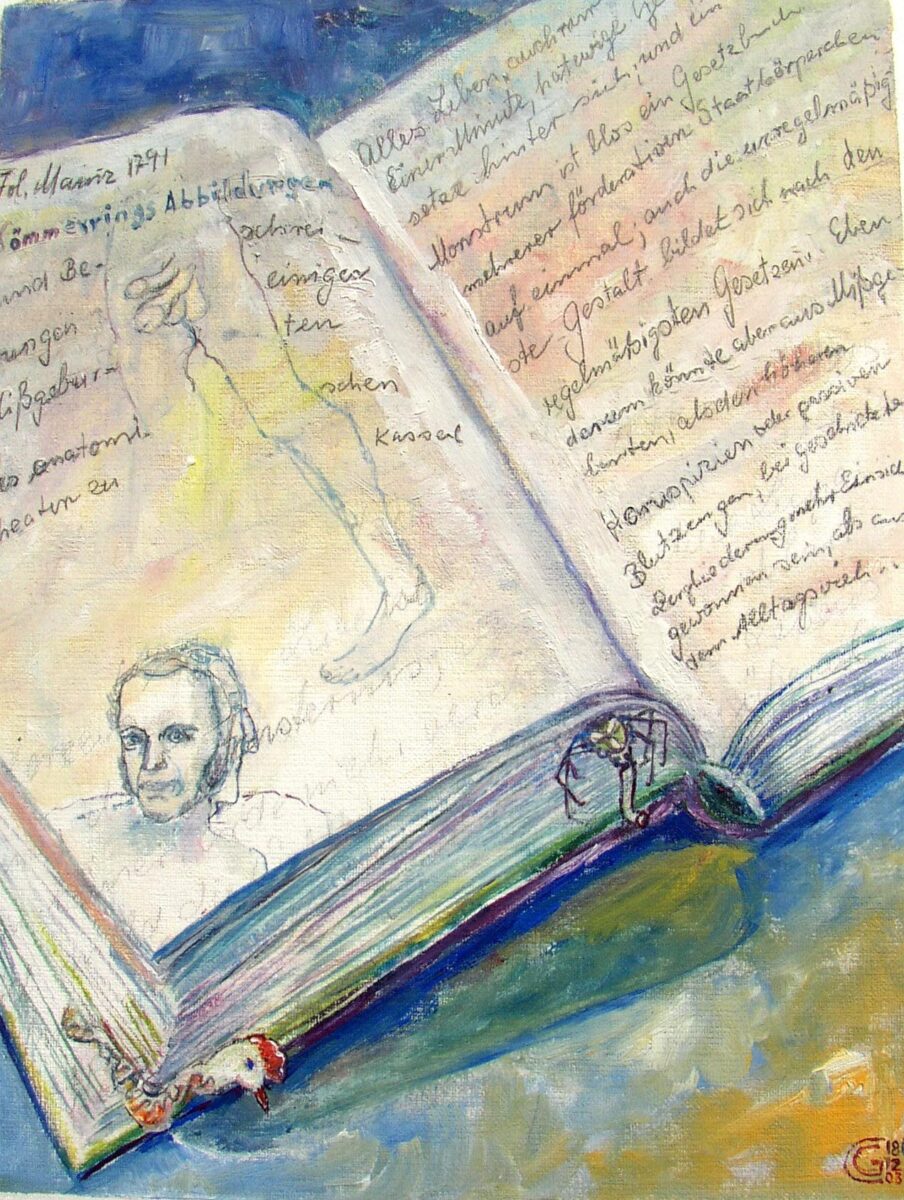 Fol, Mainz 1791
ömmerrings Abbildungen
und Be- schrei -
ungen einiger
ißgebur- ten
anatomi- schen
heaten zu Kassel
Alles Leben, auch nur
Einer Minute, hat ewige Ge
setze hinter sich, und ein
Monstrum ist blos ein Gesetzbuch
mehrerer föderativen Staatkörperchen
auf einmal; auch die unregelmäßig
ste Gestalt bildet sich nach den
regelmäßigsten Gesetzen. Eben
deswegen könnte aber aus Mißge
burten, als den höheren
Haruspizien oder passiven
Blutzeugen, bei geschickter
Zergliederung mehr Einsich
gewonnen sein, als aus
dem Alltagsvieh...
G
12
03